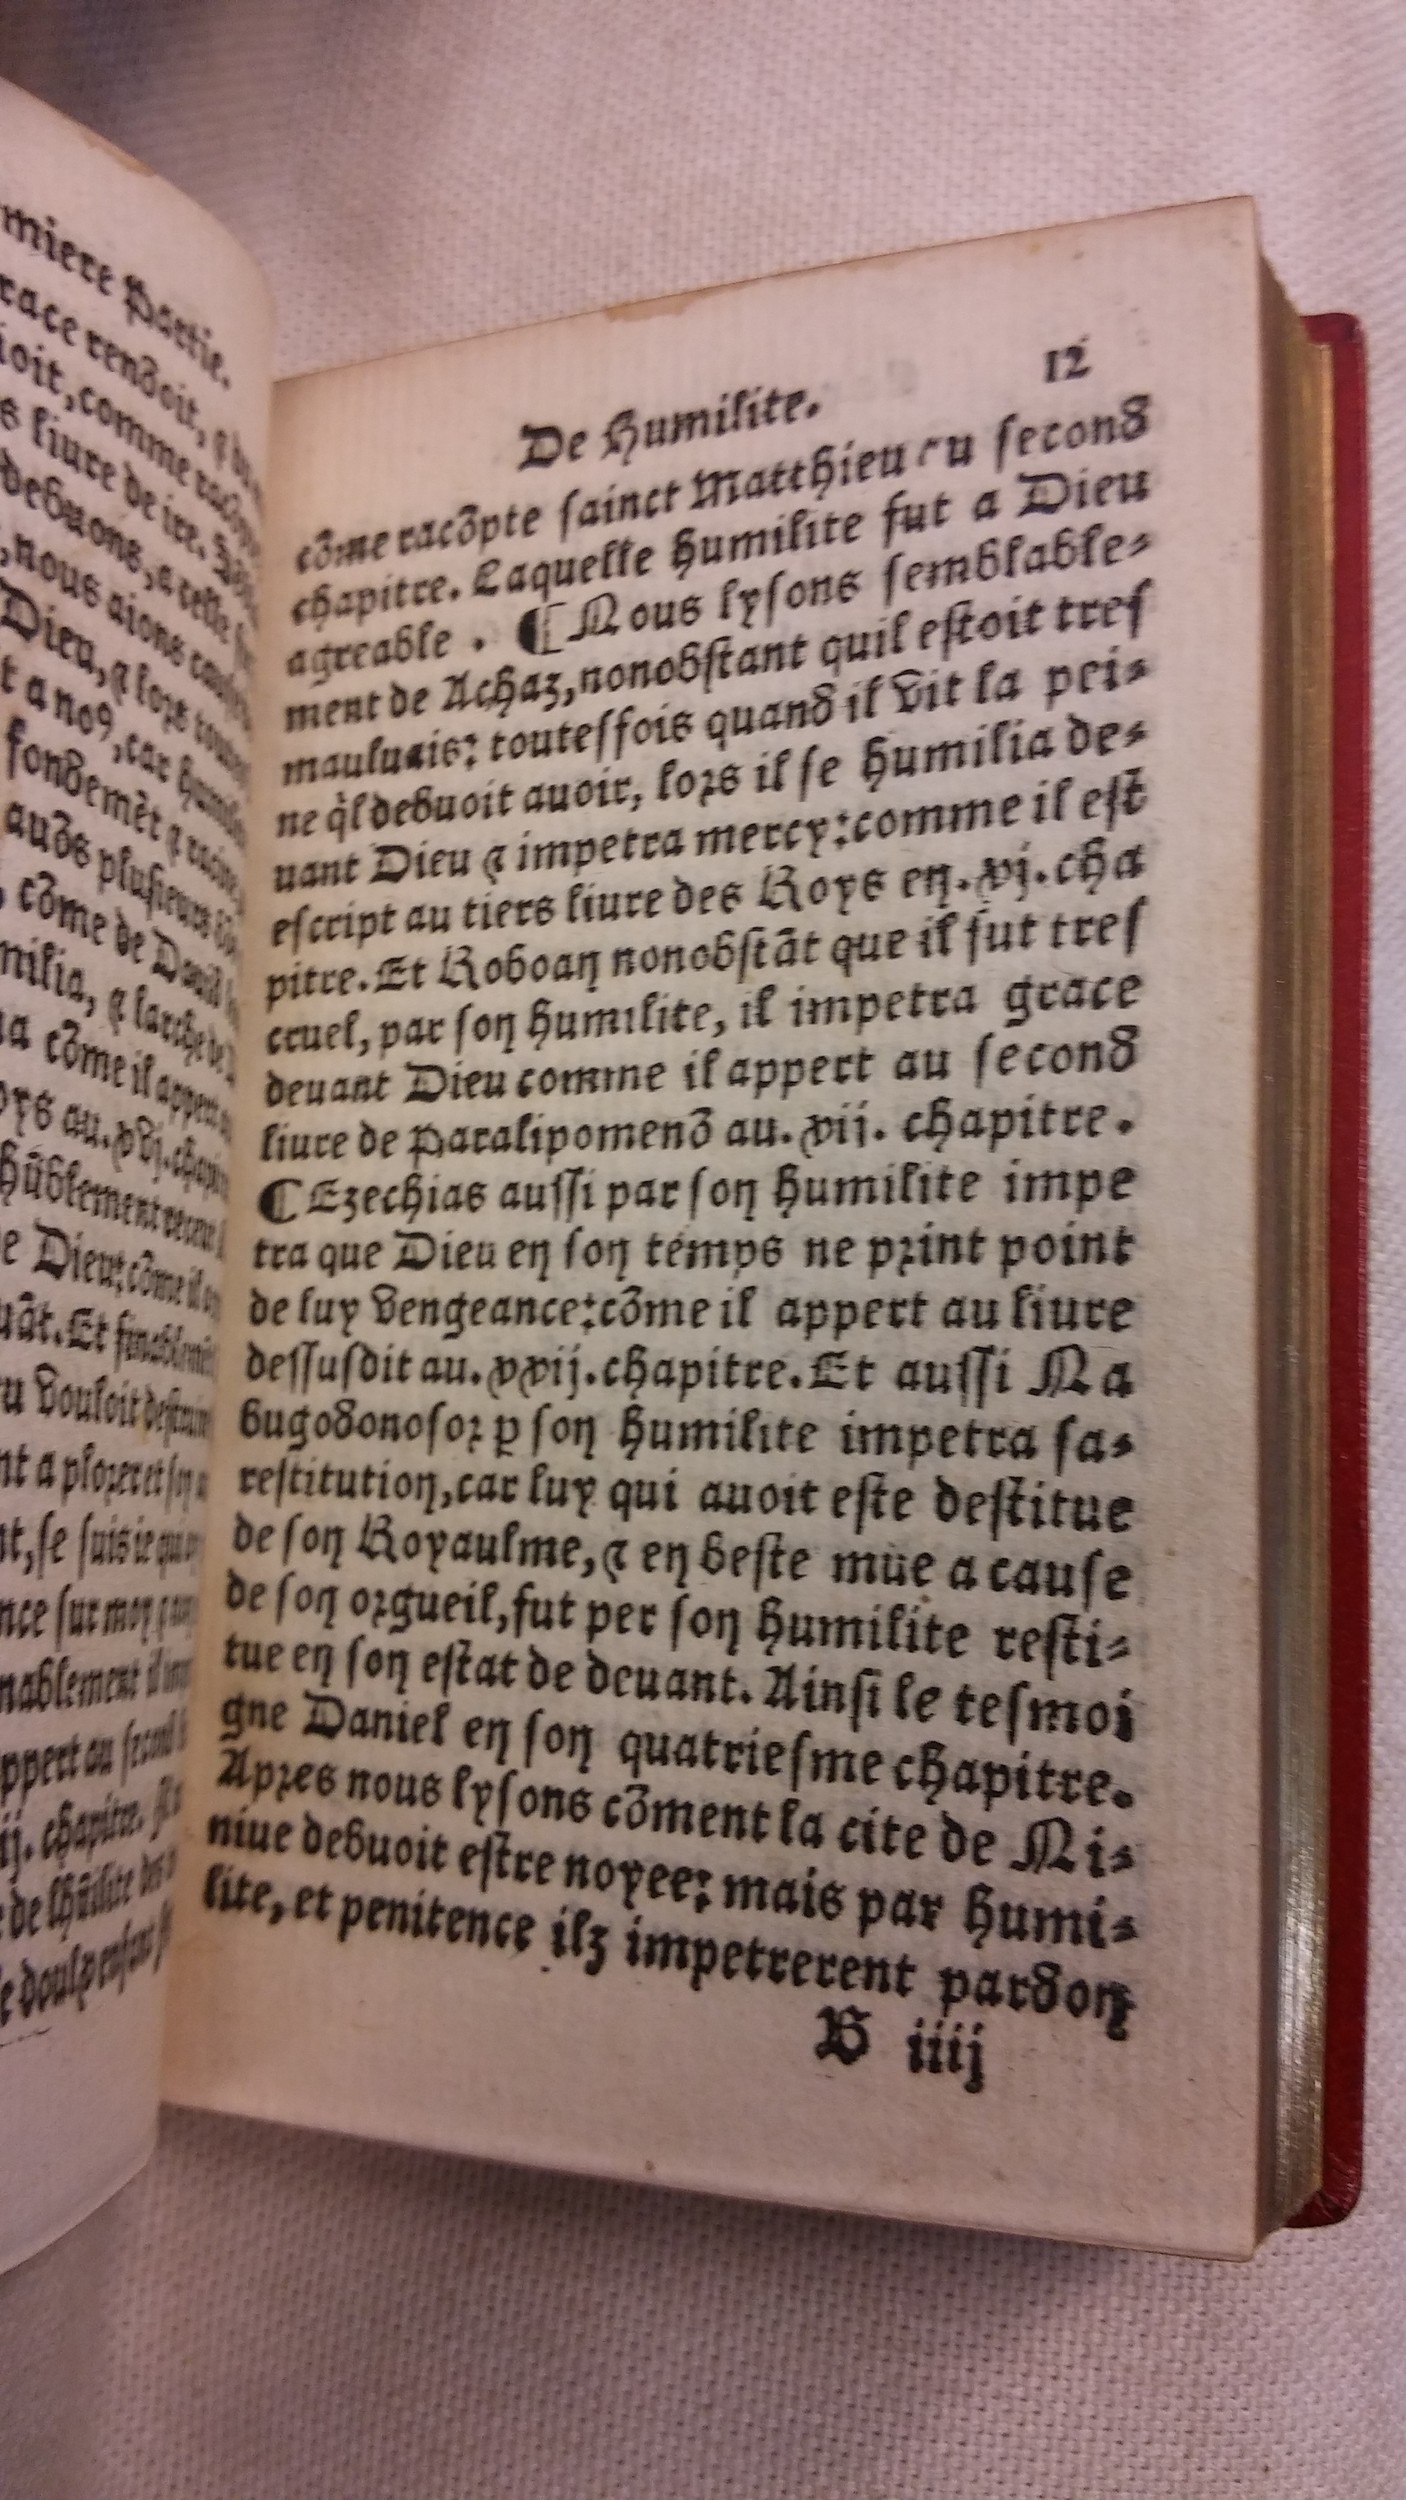 miere Partie.
race rendoit, ⁊
ioit, comme
s liure de ire.
debuons, a celle
, nous aions
Dieu, ⁊ lors
t a noꝰ, car
fondemēt ⁊ racine
auōs plusieurs
, cōme de Dauid
milia, ⁊ larche de
ua cōme il appert
oys au. xvj. chapi
hūblement
e Dieu: cōme il
uāt. Et
u vouloit
nt a plorer et
nt, se suis ie qui
nce sur moy ⁊
nablement il
ppert au second
ij. chapitre.
de lhūilite des
e doulx
De Humilite. 12
cōme racōpte ſainct Matthieu u ſecond
chapitre. Laquelle humilite fut a Dieu
agreable . ¶ Nous lyſons ſemblable-
ment de Achaz, nonobſtant quil eſtoit treſ
mauluais: touteſfois quand il vit la pei-
ne q̇l debuoit auoir, lors il ſe humilia de-
uant Dieu ⁊ impetra mercy: comme il eſt
eſcript au tiers liure des Roys en. xj. cha
pitre. Et Roboan nonobſtāt que il fut treſ
cruel, par ſon humilite, il impetra grace
deuant Dieu comme il appert au ſecond
liure de Paralipomenō au. xij. chapitre.
¶ Ezechias auſſi par ſon humilite impe
tra que Dieu en ſon temps ne print point
de luy vengeance: cōme il appert au liure
deſſuſdit au. xxij. chapitre. Et auſſi Na
bugodonoſor ꝑ ſon humilite impetra ſa-
reſtitution, car luy qui auoit eſte deſtitue
de ſon Royaulme, ⁊ en beſte mue a cauſe
de ſon orgueil, fut per ſon humilite reſti-
tue en ſon eſtat de deuant. Ainſi le teſmoi
gne Daniel en ſon quatrieſme chapitre.
Apres nous lyſons cōment la cite de Ni-
niue debuoit eſtre noyee: mais par humi-
lite, et penitence ilz impetrerent pardon
B iiij